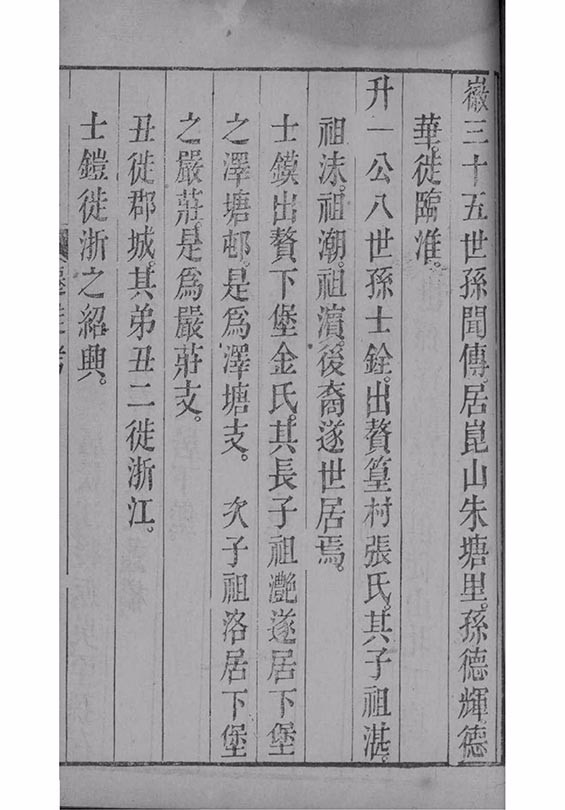 嶶三十五世孫聞傳。居崑山朱塘里。孫德輝。德
華。徙臨淮。
升一公八世孫士銓。出贅篁村張氏。其子祖湛。
祖沬。祖潮。祖濱。後裔遂世居焉。
士鏌出贅下堡金氏。其長子祖灔遂居下堡
之澤塘邨。是爲澤塘支。 次子祖洛居下堡
之嚴莊。是爲嚴莊支。
丑徙郡城。其弟丑二徙浙江。
士鎧徙浙之紹興。